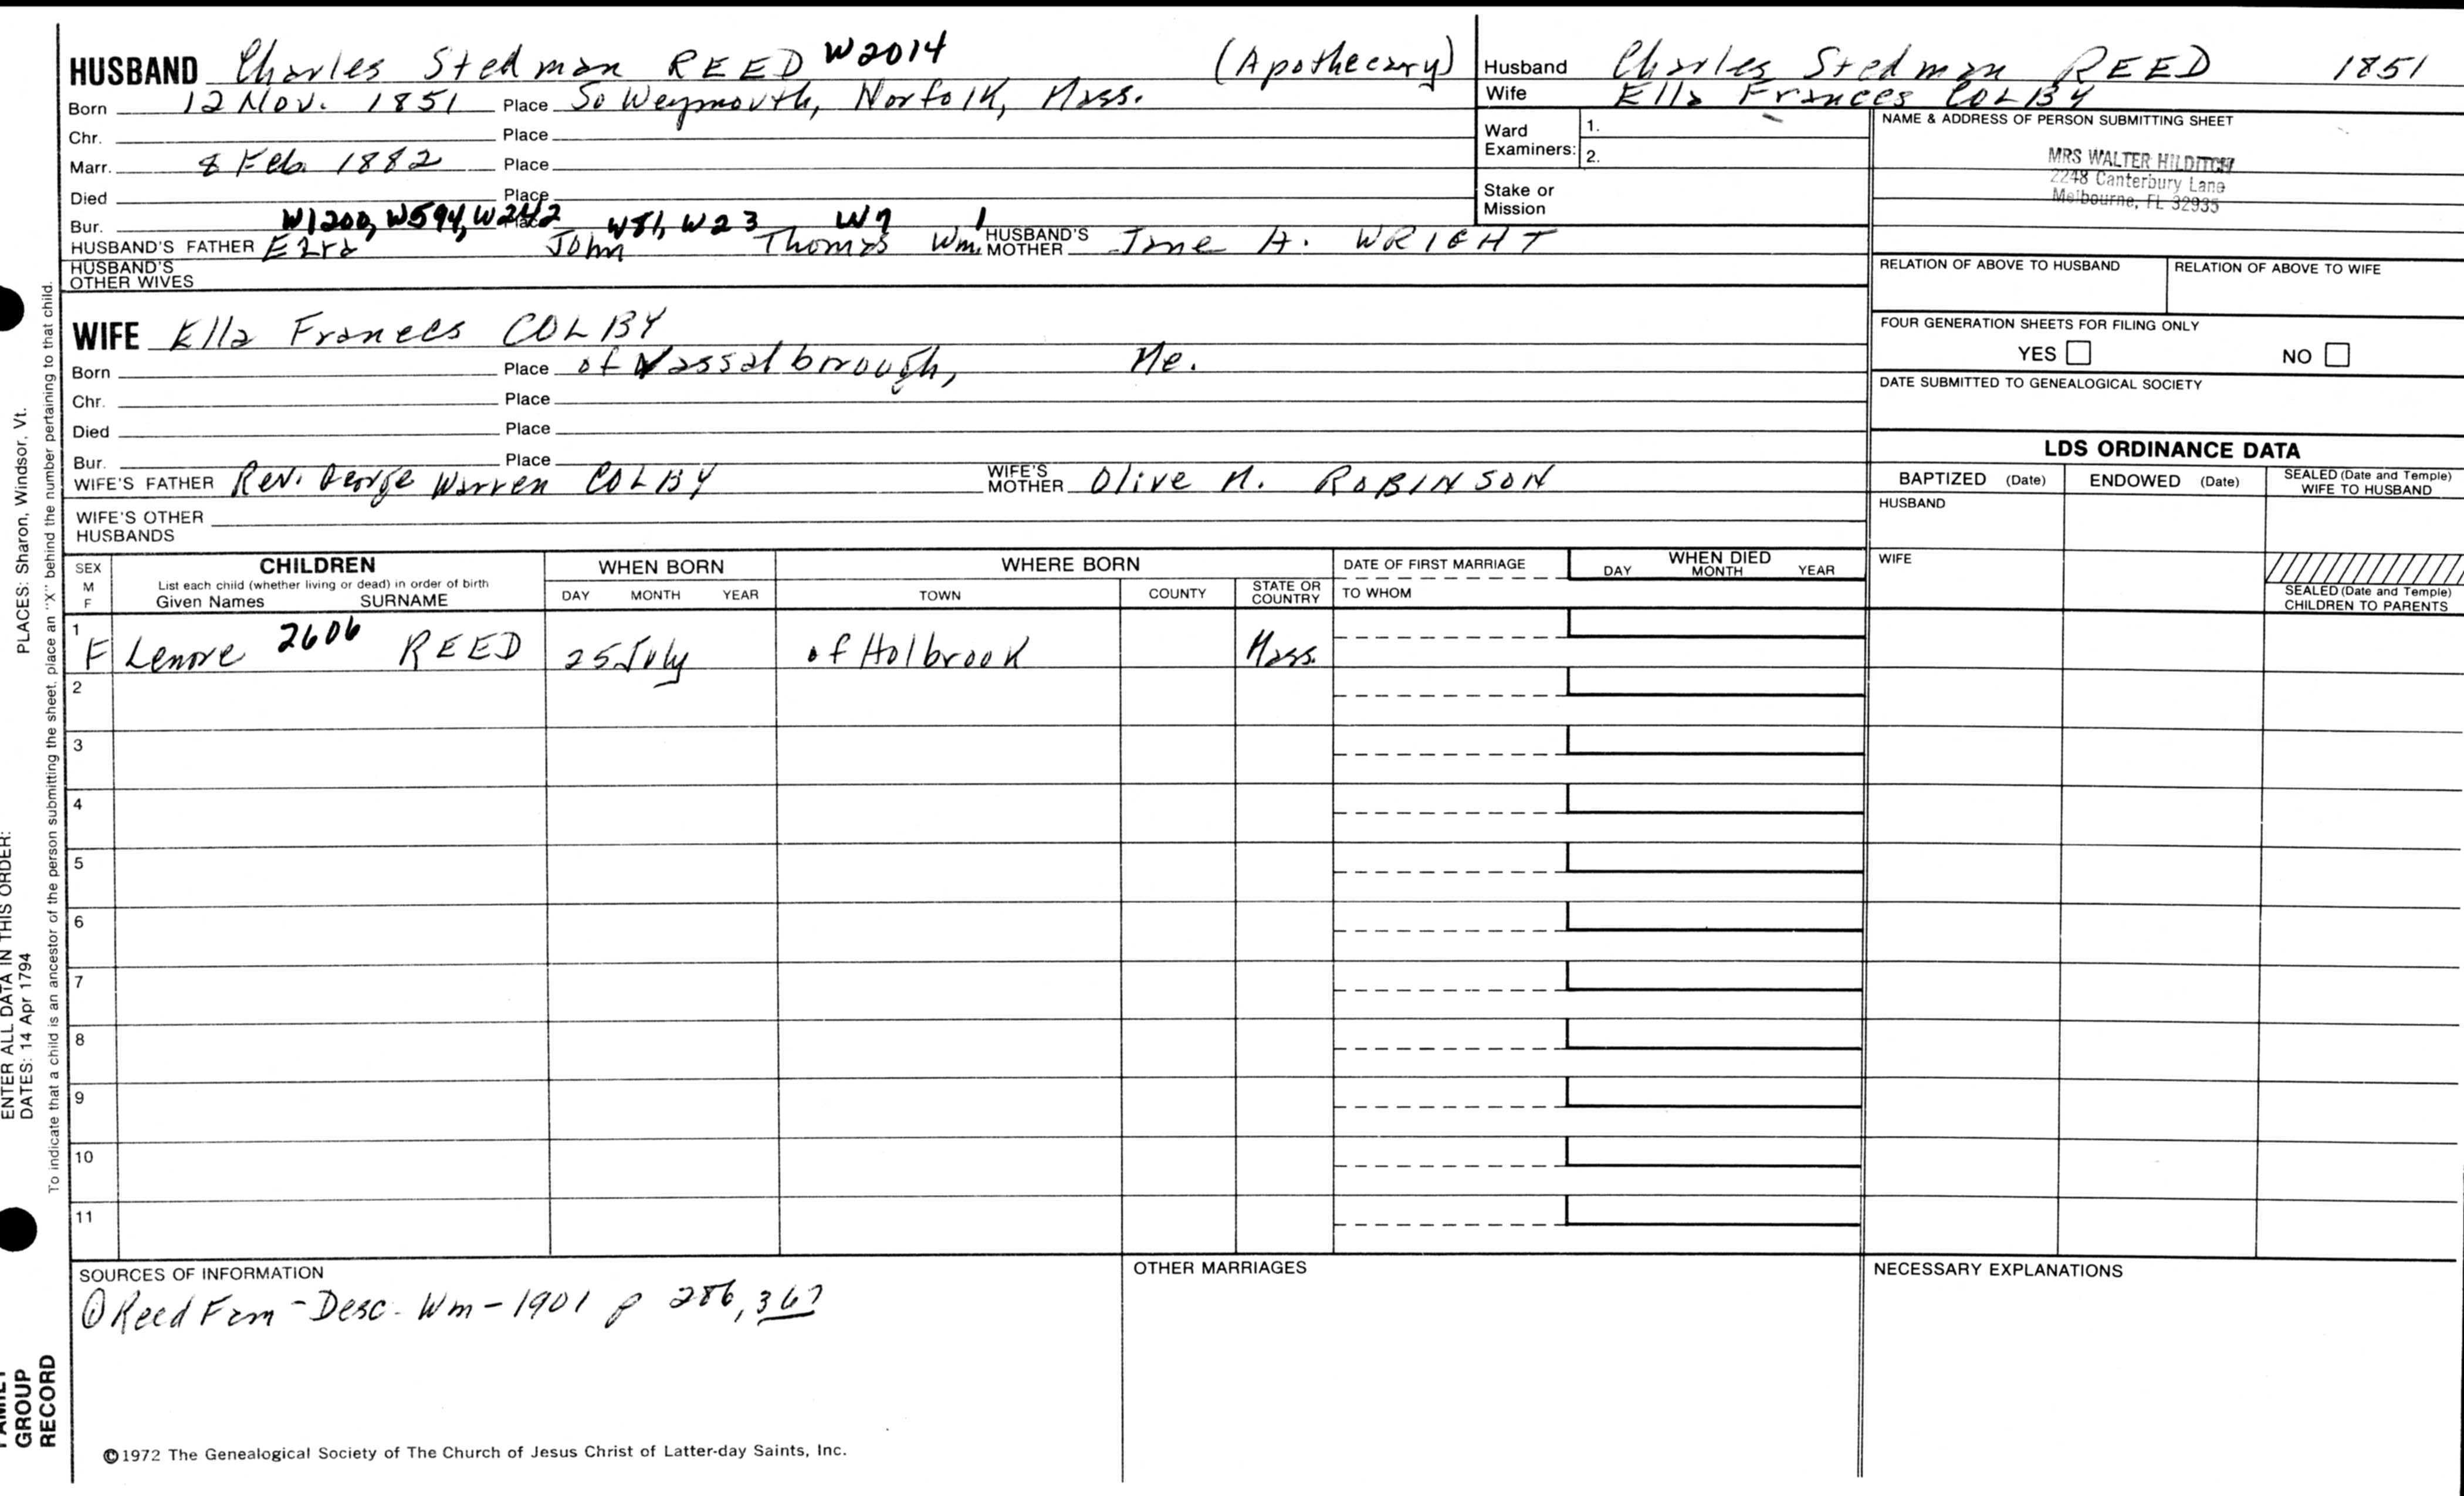 HUSBAND Charles Stedman REED W2014 (Apothecary)
Born 12 Nov. 1851 Place So Weymouth, Norfolk, Mass.
Chr. Place
Marr. 8 Feb. 1882 Place
Died Place
Bur. W1200, W594, W242 Place W81, W23 W7 1
HUSBAND'S FATHER Ezra John Thomas Wm. HUSBAND'S MOTHER Jane A. WRIGHT
HUSBAND'S OTHER WIVES
WIFE Ella Frances COLBY
Born Place of Vassalborough, Me.
Chr. Place
Died Place
Bur. Place
WIFE'S FATHER Rev. George Warren COLBY WIFE'S MOTHER Olive N. ROBINSON
WIFE'S OTHER HUSBANDS
Husband Charles Stedman REED 1851
Wife Ella Frances COLBY
Ward Examiners: 1.
2.
Stake or Mission
NAME & ADDRESS OF PERSON SUBMITTING SHEET
MRS WALTER HILDITCH
2248 Canterbury Lane
Melbourne, FL 32935
RELATION OF ABOVE TO HUSBAND RELATION OF ABOVE TO WIFE
FOUR GENERATION SHEETS FOR FILING ONLY
YES NO
DATE SUBMITTED TO GENEALOGICAL SOCIETY
LDS ORDINANCE DATA
BAPTIZED (Date) ENDOWED (Date) SEALED (Date and Temple) WIFE TO HUSBAND
HUSBAND
WIFE
SEALED (Date and Temple) CHILDREN TO PARENTS
SEX M F
CHILDREN
List each child (whether living or dead) in order of birth
Given Names SURNAME
WHEN BORN
DAY MONTH YEAR
WHERE BORN
TOWN COUNTY STATE OR COUNTRY
DATE OF FIRST MARRIAGE
TO WHOM
WHEN DIED
DAY MONTH YEAR
1 F Lenore 2606 REED 25 July of Holbrook Mass.
2
3
4
5
6
7
8
9
10
11
SOURCES OF INFORMATION
① Reed Fam - Desc. Wm - 1901 p 286, 367
OTHER MARRIAGES
NECESSARY EXPLANATIONS
©1972 The Genealogical Society of The Church of Jesus Christ of Latter-day Saints, Inc.
ENTER ALL DATA IN THIS ORDER:
DATES: 14 Apr 1794 PLACES: Sharon, Windsor, Vt.
To indicate that a child is an ancestor of the person submitting the sheet, place an "X" behind the number pertaining to that child.
FAMILY
GROUP
RECORD